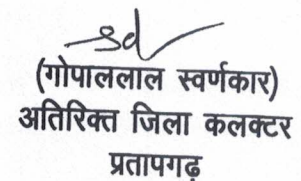 sd
(गोपाललाल स्वर्णकार)
अतिरिक्त जिला कलक्टर
प्रतापगढ़